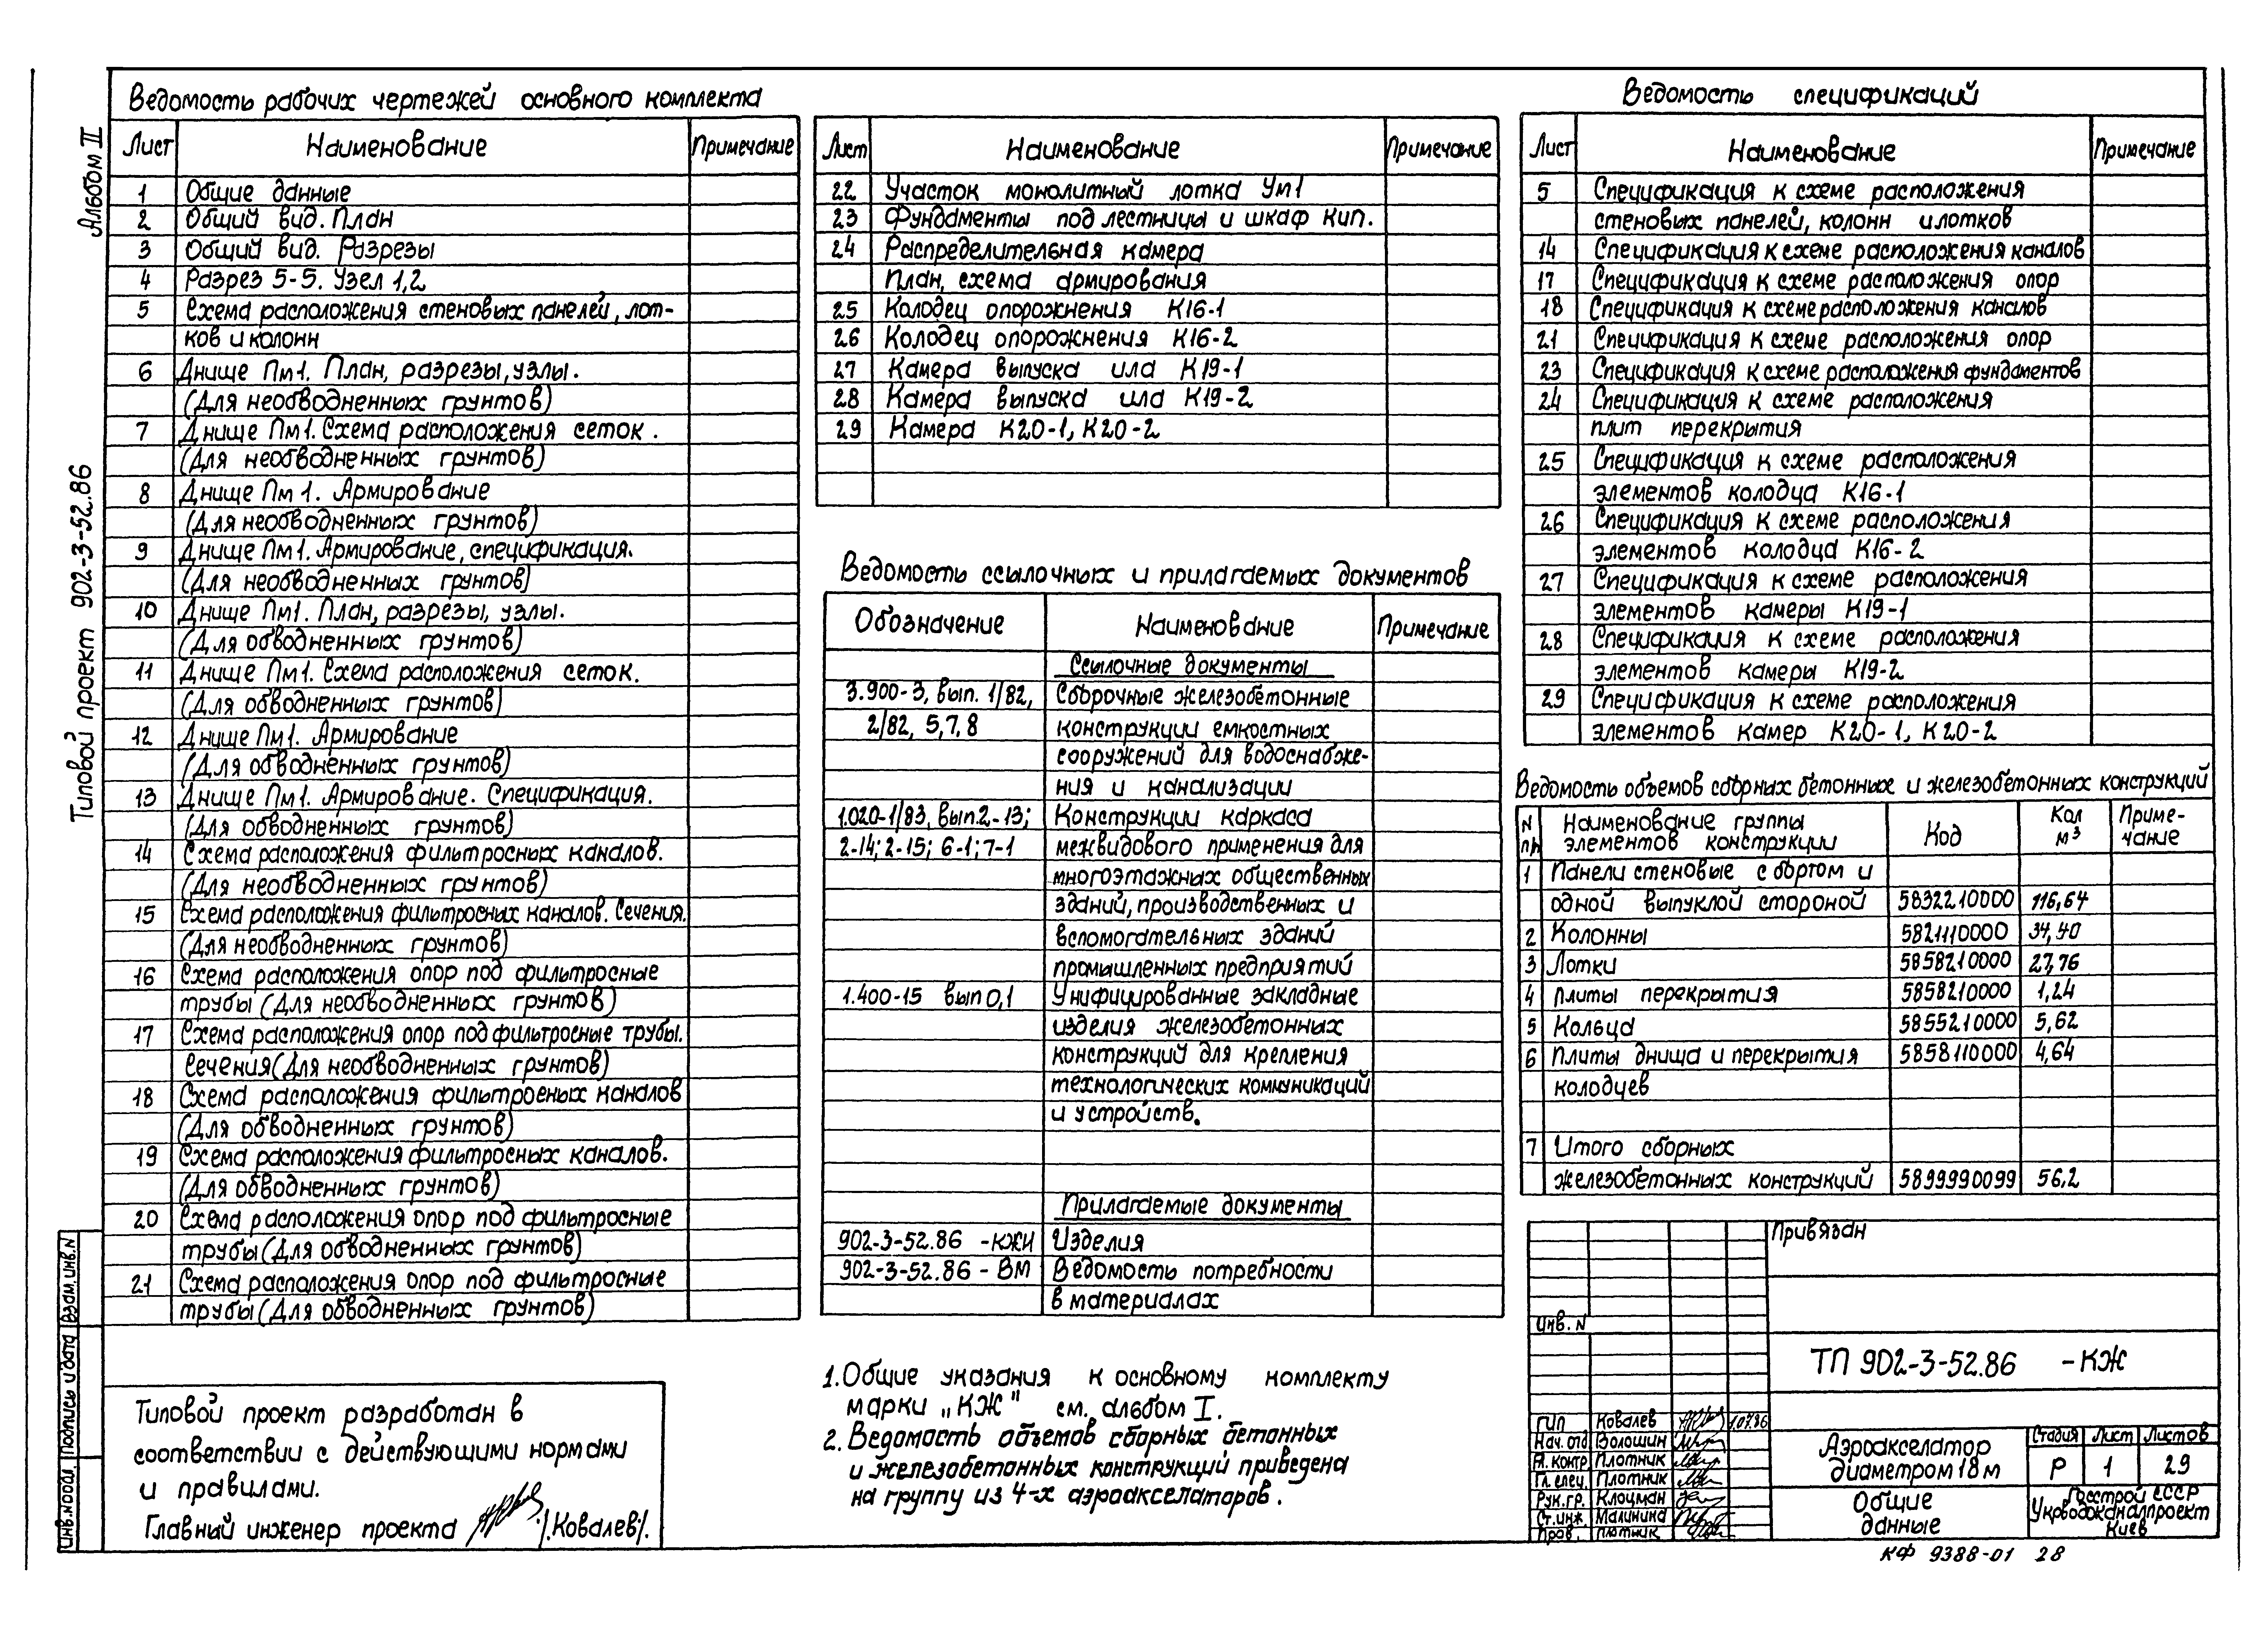 Альбом II
Типовой проект 902-3-52.86
Взам. инв. N
Подпись и дата
Инв. N подл.
Ведомость рабочих чертежей основного комплекта
Лист Наименование Примечание
1 Общие данные
2 Общий вид. План
3 Общий вид. Разрезы
4 Разрез 5-5. Узел 1,2
5 Схема расположения стеновых панелей, лот-
ков и колонн
6 Днище Пм1. План, разрезы, узлы.
(Для необводненных грунтов)
7 Днище Пм1. Схема расположения сеток.
(Для необводненных грунтов)
8 Днище Пм1. Армирование
(Для необводненных грунтов)
9 Днище Пм1. Армирование, спецификация.
(Для необводненных грунтов)
10 Днище Пм1. План, разрезы, узлы.
(Для обводненных грунтов)
11 Днище Пм1. Схема расположения сеток.
(Для обводненных грунтов)
12 Днище Пм1. Армирование
(Для обводненных грунтов)
13 Днище Пм1. Армирование. Спецификация.
(Для обводненных грунтов)
14 Схема расположения фильтросных каналов.
(Для необводненных грунтов)
15 Схема расположения фильтросных каналов. Сечения.
(Для необводненных грунтов)
16 Схема расположения опор под фильтросные
трубы (Для необводненных грунтов)
17 Схема расположения опор под фильтросные трубы.
Сечения (Для необводненных грунтов)
18 Схема расположения фильтросных каналов
(Для обводненных грунтов)
19 Схема расположения фильтросных каналов.
(Для обводненных грунтов)
20 Схема расположения опор под фильтросные
трубы (Для обводненных грунтов)
21 Схема расположения опор под фильтросные
трубы (Для обводненных грунтов)
Типовой проект разработан в
соответствии с действующими нормами
и правилами.
Главный инженер проекта /.Ковалев/.
Лист Наименование Примечание
22 Участок монолитный лотка Ум1
23 Фундаменты под лестницы и шкаф КИП.
24 Распределительная камера
План, схема армирования
25 Колодец опорожнения К16-1
26 Колодец опорожнения К16-2
27 Камера выпуска ила К19-1
28 Камера выпуска ила К19-2
29 Камера К20-1, К20-2
Ведомость ссылочных и прилагаемых документов
Обозначение Наименование Примечание
Ссылочные документы
3.900-3, вып. 1/82, Сборочные железобетонные
2/82, 5,7,8 конструкции емкостных
сооружений для водоснабже-
ния и канализации
1.020-1/83, вып.2-13; Конструкции каркаса
2-14; 2-15; 6-1; 7-1 межвидового применения для
многоэтажных общественных
зданий, производственных и
вспомогательных зданий
промышленных предприятий
1.400-15 вып 0,1 Унифицированные закладные
изделия железобетонных
конструкций для крепления
технологических коммуникаций
и устройств.
Прилагаемые документы
902-3-52.86 -КЖИ Изделия
902-3-52.86 - ВМ Ведомость потребности
в материалах
1. Общие указания к основному комплекту
марки „КЖ" см. альбом I.
2. Ведомость объемов сборных бетонных
и железобетонных конструкций приведена
на группу из 4-х аэроакселаторов.
Ведомость спецификаций
Лист Наименование Примечание
5 Спецификация к схеме расположения
стеновых панелей, колонн и лотков
14 Спецификация к схеме расположения каналов
17 Спецификация к схеме расположения опор
18 Спецификация к схеме расположения каналов
21 Спецификация к схеме расположения опор
23 Спецификация к схеме расположения фундаментов
24 Спецификация к схеме расположения
плит перекрытия
25 Спецификация к схеме расположения
элементов колодца К16-1
26 Спецификация к схеме расположения
элементов колодца К16-2
27 Спецификация к схеме расположения
элементов камеры К19-1
28 Спецификация к схеме расположения
элементов камеры К19-2
29 Спецификация к схеме расположения
элементов камер К20-1, К20-2
Ведомость объемов сборных бетонных и железобетонных конструкций
N Наименование группы Код Кол Приме-
пп элементов конструкции м3 чание
1 Панели стеновые с бортом и
одной выпуклой стороной 5832210000 116,64
2 Колонны 5821110000 34,40
3 Лотки 5858210000 27,76
4 Плиты перекрытия 5858210000 1,24
5 Кольца 5855210000 5,62
6 Плиты днища и перекрытия 5858110000 4,64
колодцев
7 Итого сборных
железобетонных конструкций 5899990099 56.2
Привязан
Инв. N
ТП 902-3-52.86 -КЖ
ГИП Ковалев 1.07.86
Нач. отд Волошин
Н. контр Плотник
Гл. спец. Плотник
Рук. гр. Клоцман
Ст. инж. Малинина
Пров. Плотник
Аэроакселатор
диаметром 18 м
Стадия Лист Листов
Р 1 29
Общие
данные
Госстрой СССР
Укрводоканалпроект
Киев
КФ 9388-01 28